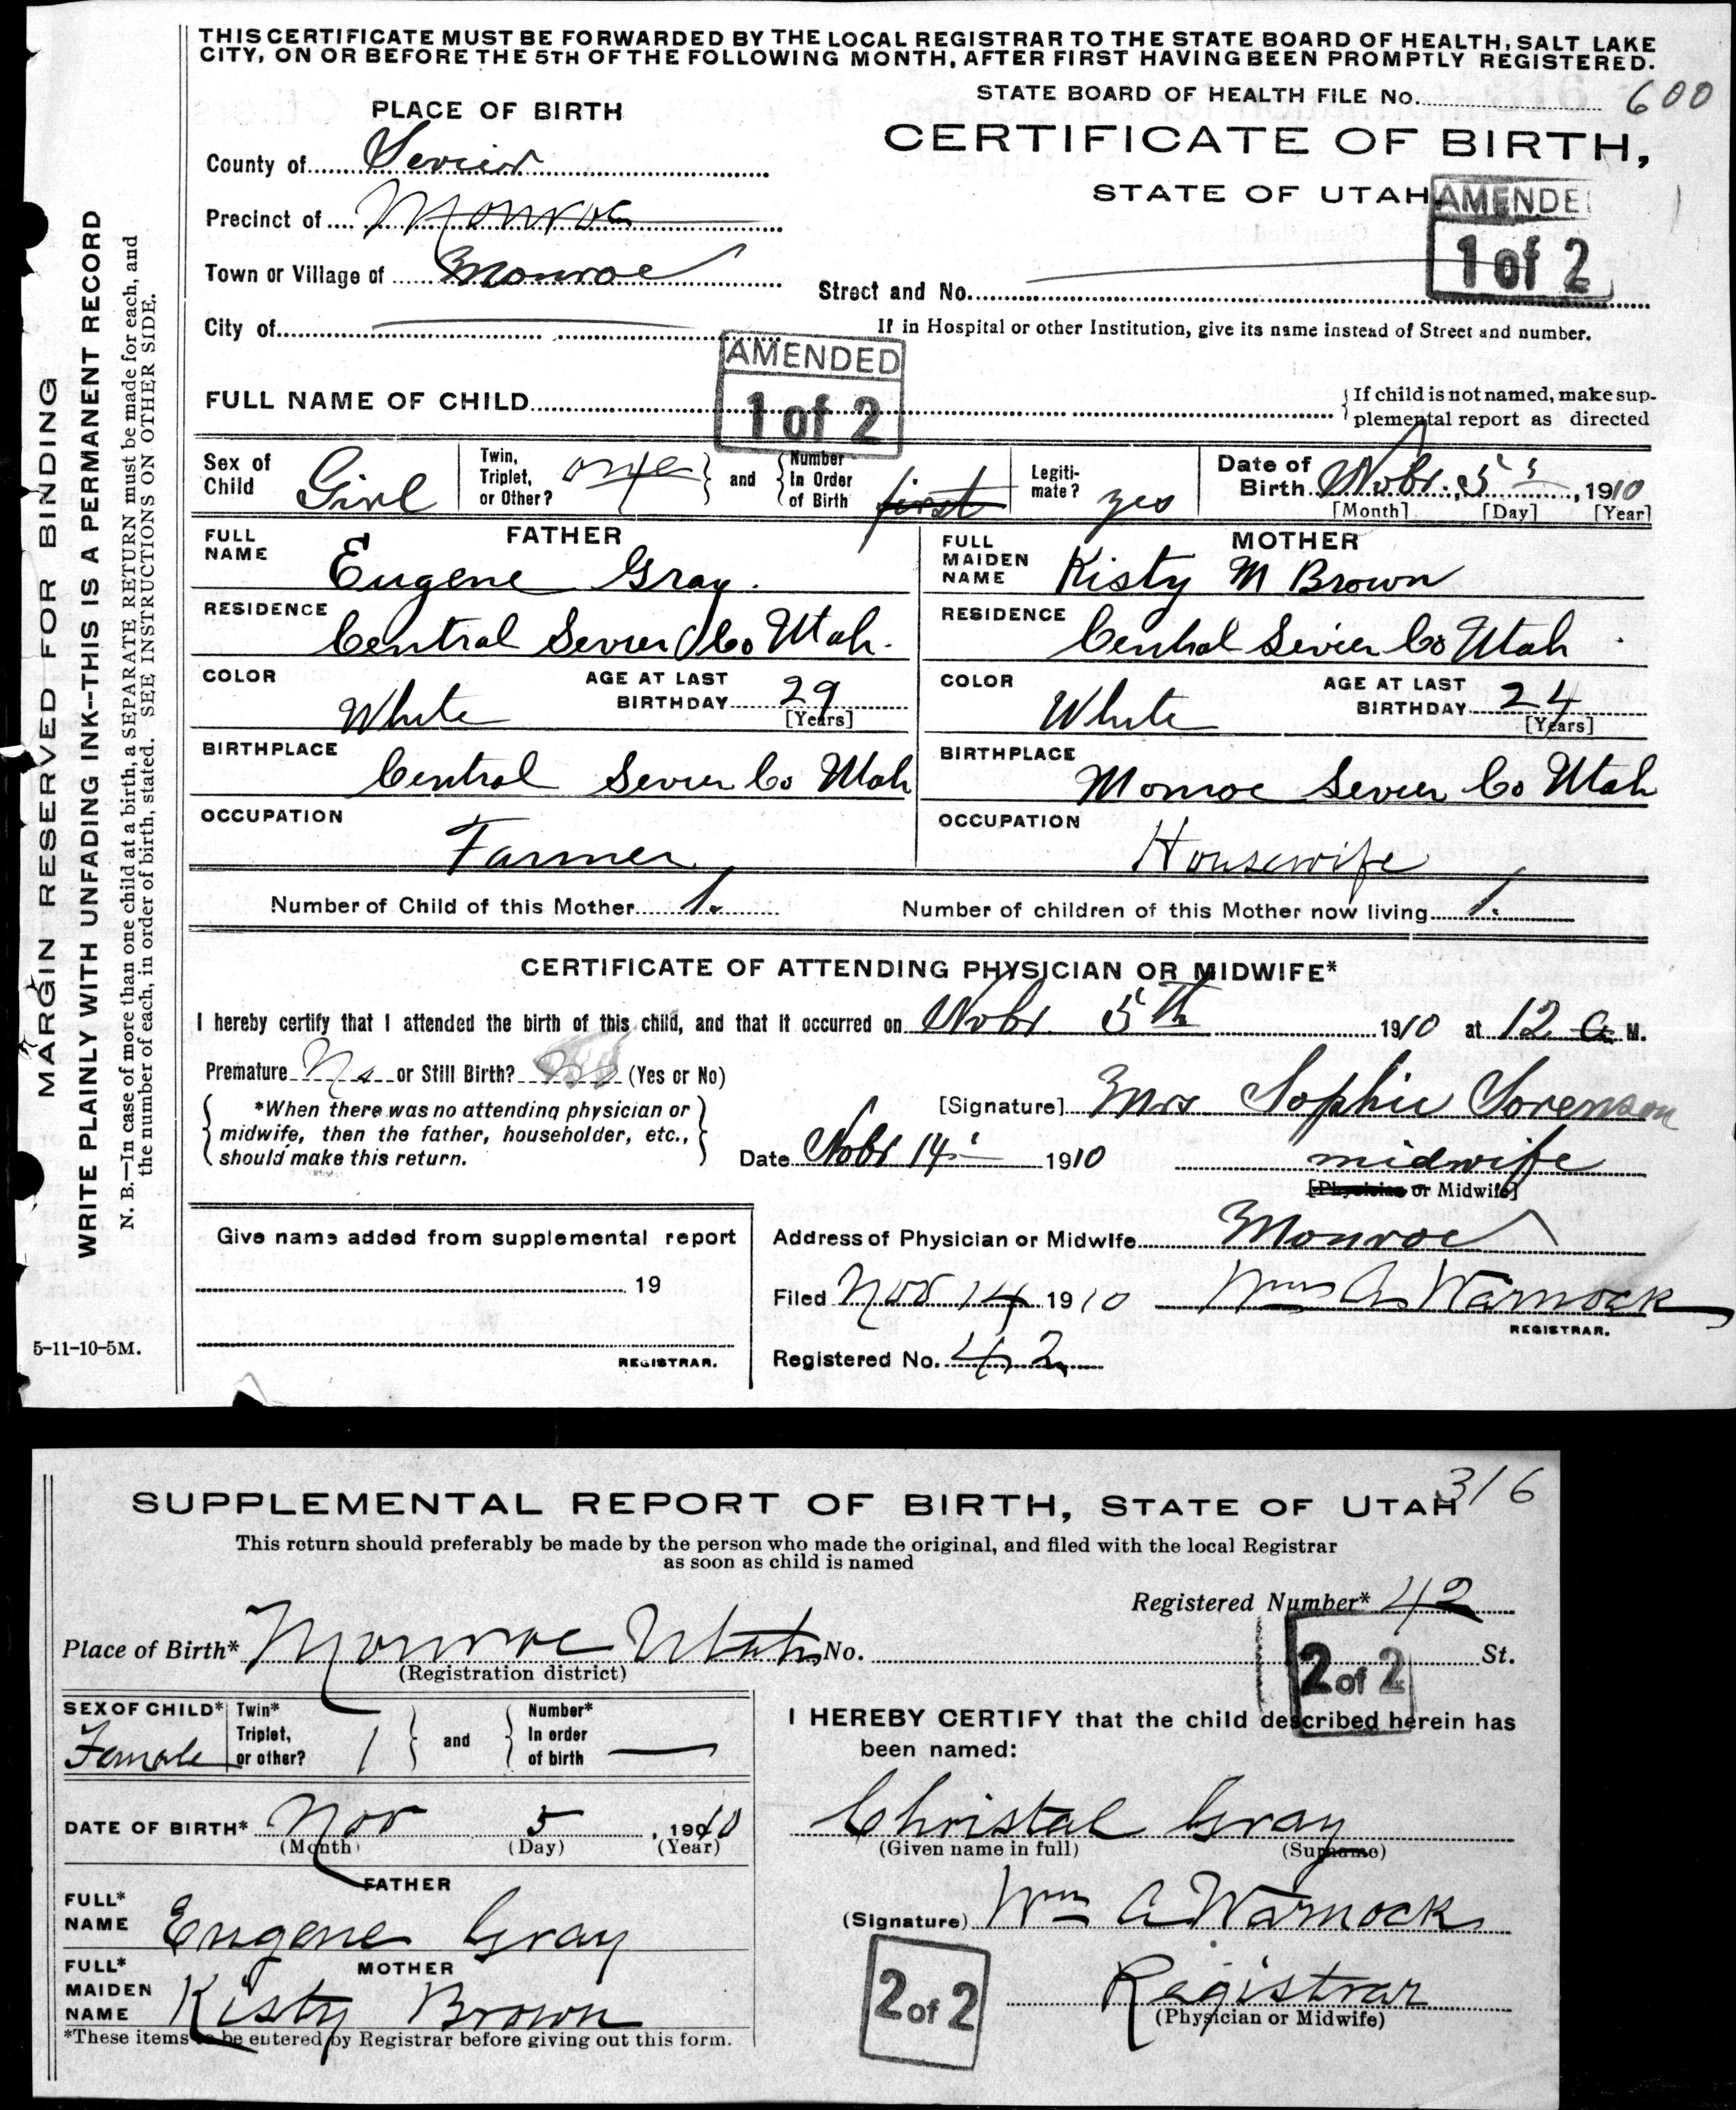 THIS CERTIFICATE MUST BE FORWARDED BY THE LOCAL REGISTRAR TO THE STATE BOARD OF HEALTH, SALT LAKE
CITY, ON OR BEFORE THE 5TH OF THE FOLLOWING MONTH, AFTER FIRST HAVING BEEN PROMPTLY REGISTERED.
STATE BOARD OF HEALTH FILE No. 600
PLACE OF BIRTH
CERTIFICATE OF BIRTH,
County of Sevier
STATE OF UTAH
AMENDE
1 of 2
Precinct of Monroe
Town or Village of Monroe
Street and No.
City of
If in Hospital or other Institution, give its name instead of Street and number.
AMENDED
1 of 2
FULL NAME OF CHILD
If child is not named, make sup-
plemental report as directed
Sex of Child Girl
Twin, Triplet, or Other? one and Number In Order of Birth first
Legiti-mate? yes
Date of Birth Nobr. 5 , 1910
[Month] [Day] [Year]
FATHER
FULL NAME Eugene Gray.
RESIDENCE Central Sevier Co Utah.
COLOR White AGE AT LAST BIRTHDAY 29 [Years]
BIRTHPLACE Central Sevier Co Utah
OCCUPATION Farmer
MOTHER
FULL MAIDEN NAME Kisty M Brown
RESIDENCE Central Sevier Co Utah
COLOR White AGE AT LAST BIRTHDAY 24 [Years]
BIRTHPLACE Monroe Sevier Co Utah
OCCUPATION Housewife
Number of Child of this Mother 1. Number of children of this Mother now living 1.
CERTIFICATE OF ATTENDING PHYSICIAN OR MIDWIFE*
I hereby certify that I attended the birth of this child, and that it occurred on Nobr. 5th 1910 at 12 a M.
Premature No or Still Birth? (Yes or No)
*When there was no attending physician or
midwife, then the father, householder, etc.,
should make this return.
[Signature] Mrs Sophie Sorenson
Date Nobr 14 1910 midwife
[Physician or Midwife]
Give name added from supplemental report
19
REGISTRAR.
Address of Physician or Midwife Monroe
Filed Nov 14 1910 Wm A Warnock
REGISTRAR.
Registered No. 42
MARGIN RESERVED FOR BINDING
WRITE PLAINLY WITH UNFADING INK--THIS IS A PERMANENT RECORD
N. B.—In case of more than one child at a birth, a SEPARATE RETURN must be made for each, and
the number of each, in order of birth, stated. SEE INSTRUCTIONS ON OTHER SIDE.
5-11-10-5M.
316
SUPPLEMENTAL REPORT OF BIRTH, STATE OF UTAH
This return should preferably be made by the person who made the original, and filed with the local Registrar
as soon as child is named
Registered Number* 42
Place of Birth* Monroe Utah No. St.
(Registration district)
2 of 2
SEX OF CHILD* Female
Twin* Triplet, or other? 1 and Number* In order of birth —
DATE OF BIRTH* Nov 5 , 19010
(Month) (Day) (Year)
FATHER
FULL* NAME Eugene Gray
MOTHER
FULL* MAIDEN NAME Kisty Brown
*These items to be entered by Registrar before giving out this form.
I HEREBY CERTIFY that the child described herein has
been named:
Christal Gray
(Given name in full) (Surname)
(Signature) Wm A Warnock
Registrar
(Physician or Midwife)
2 of 2